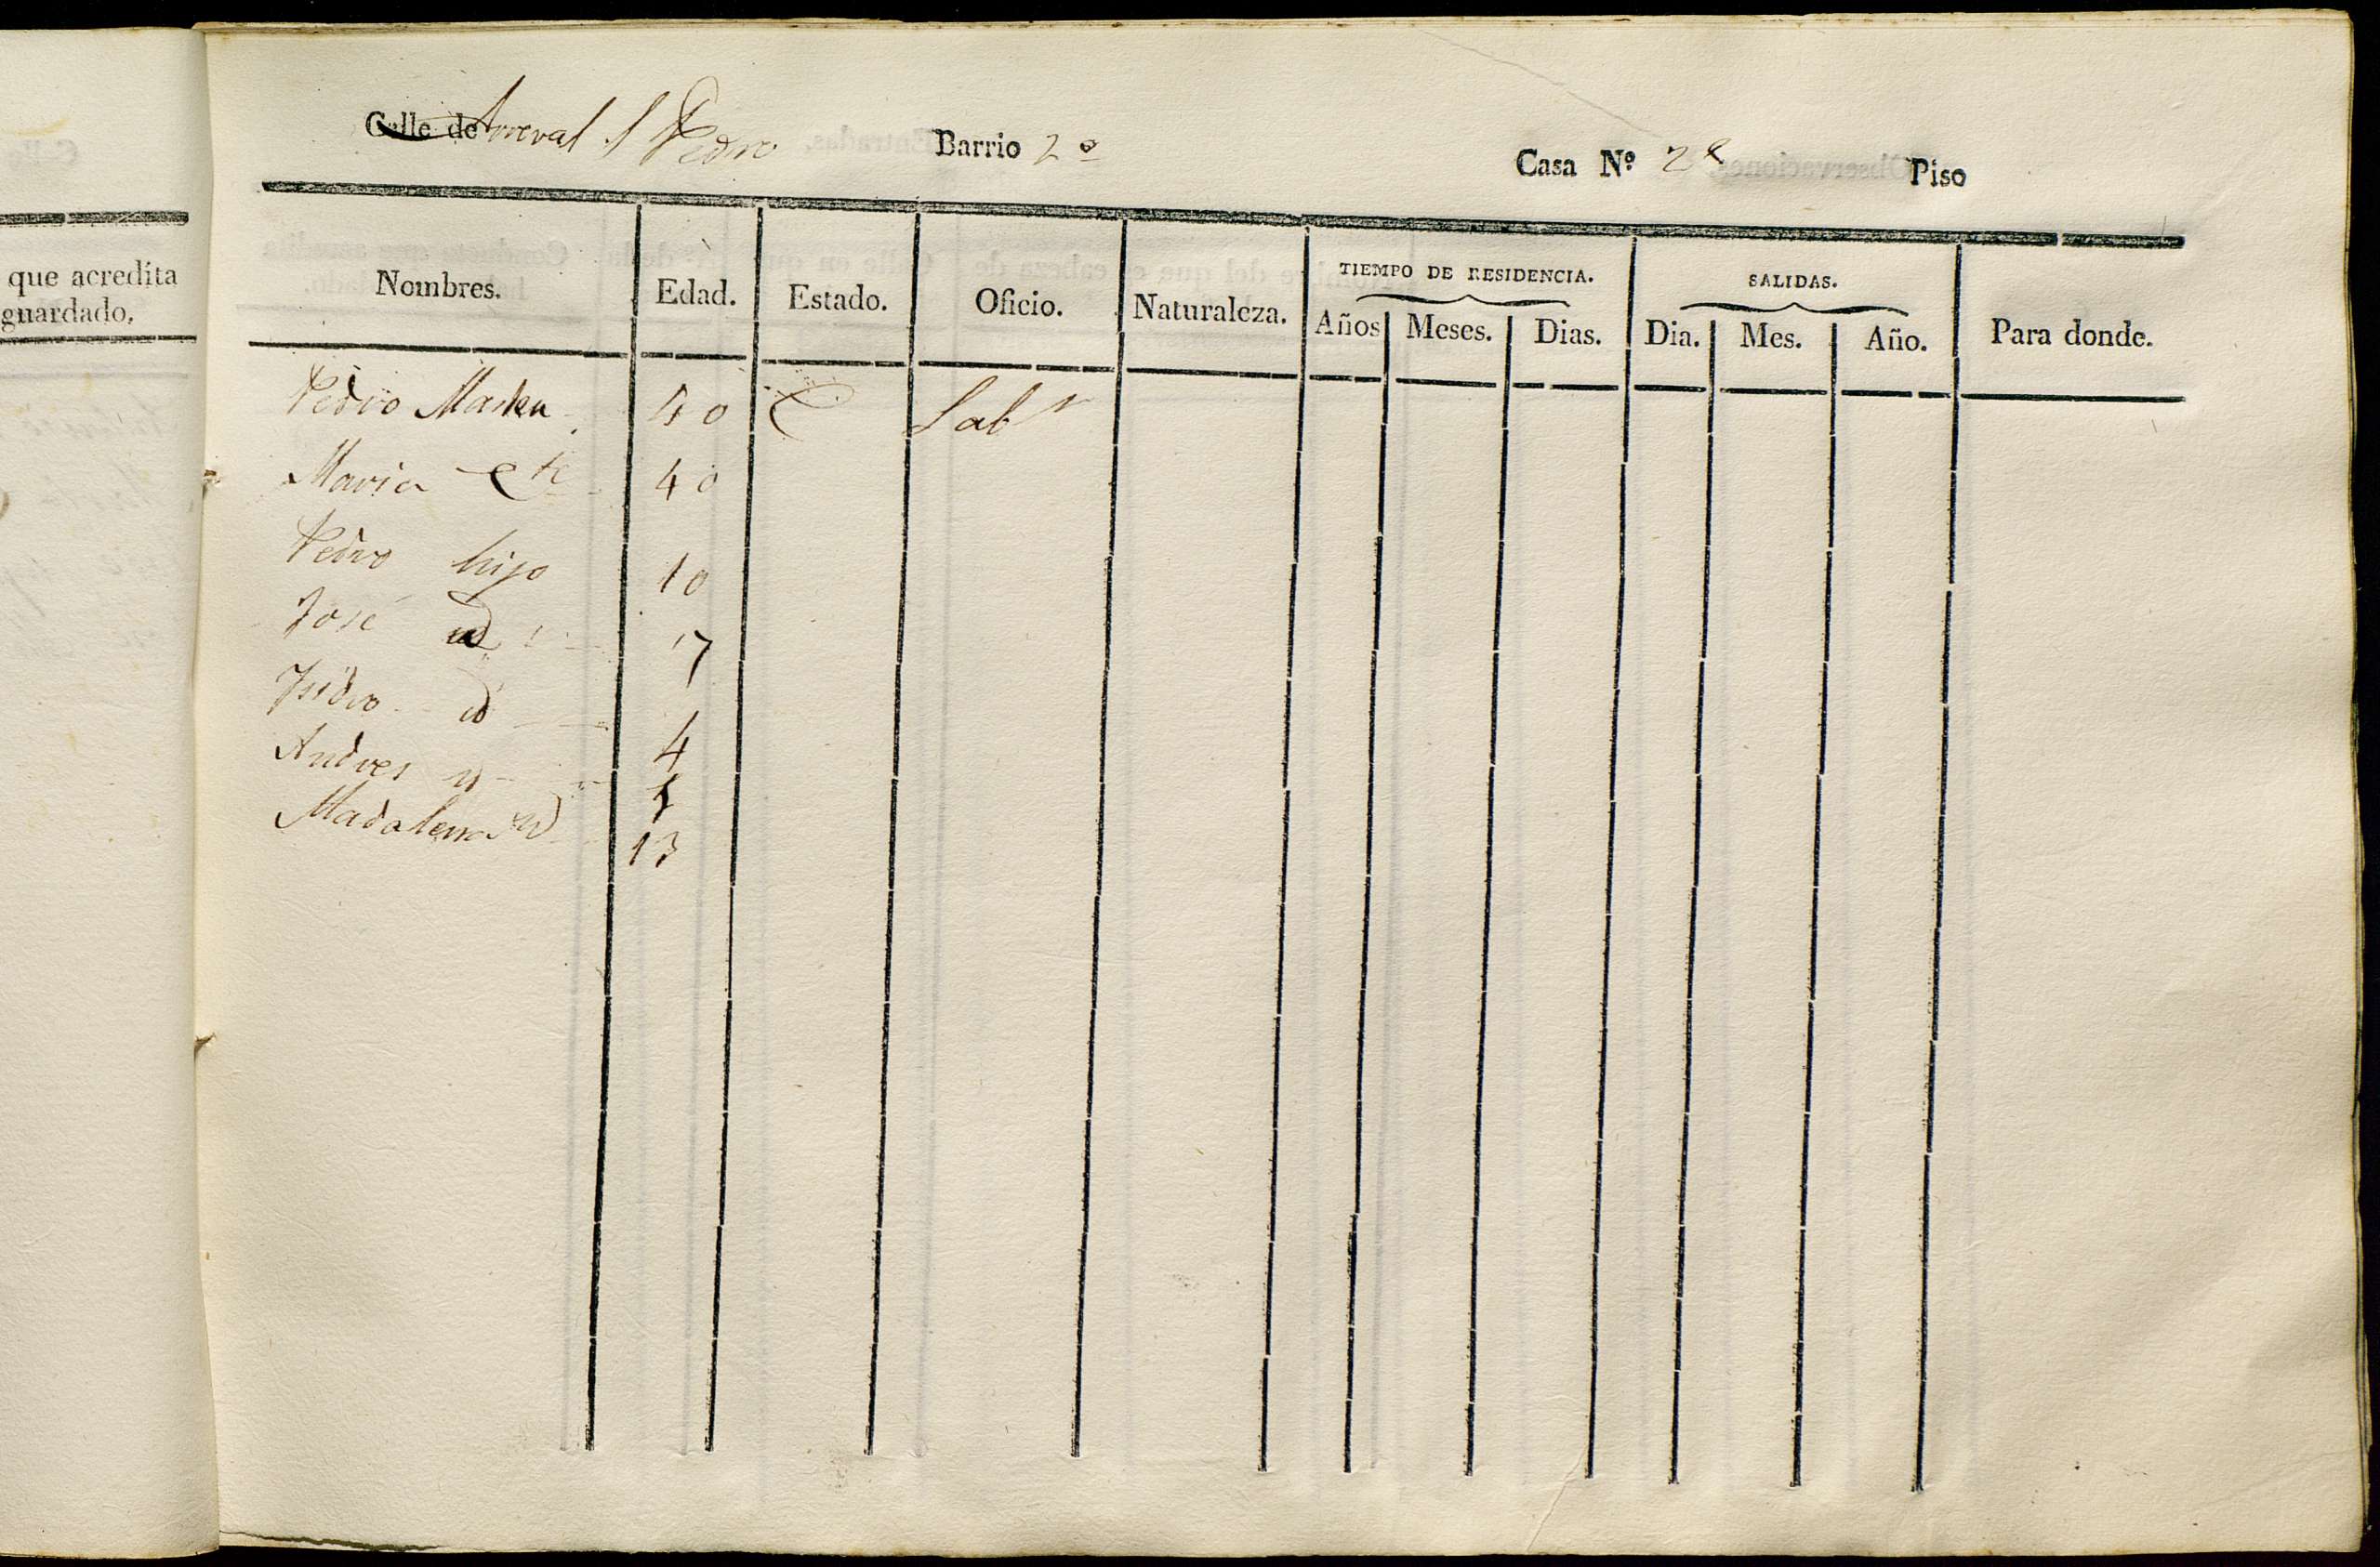 que acredita
guardado,
Calle de Arraval S Pedro Barrio 2º Casa Nº 28 Piso
Nombres. Edad. Estado. Oficio. Naturaleza. TIEMPO DE RESIDENCIA. Años Meses. Dias. SALIDAS. Dia. Mes. Año. Para donde.
Pedro 40 C Labr
Maria 40
Pedro hijo 10
José id 7
Isidro id 4
Andres id
Madalena id 13